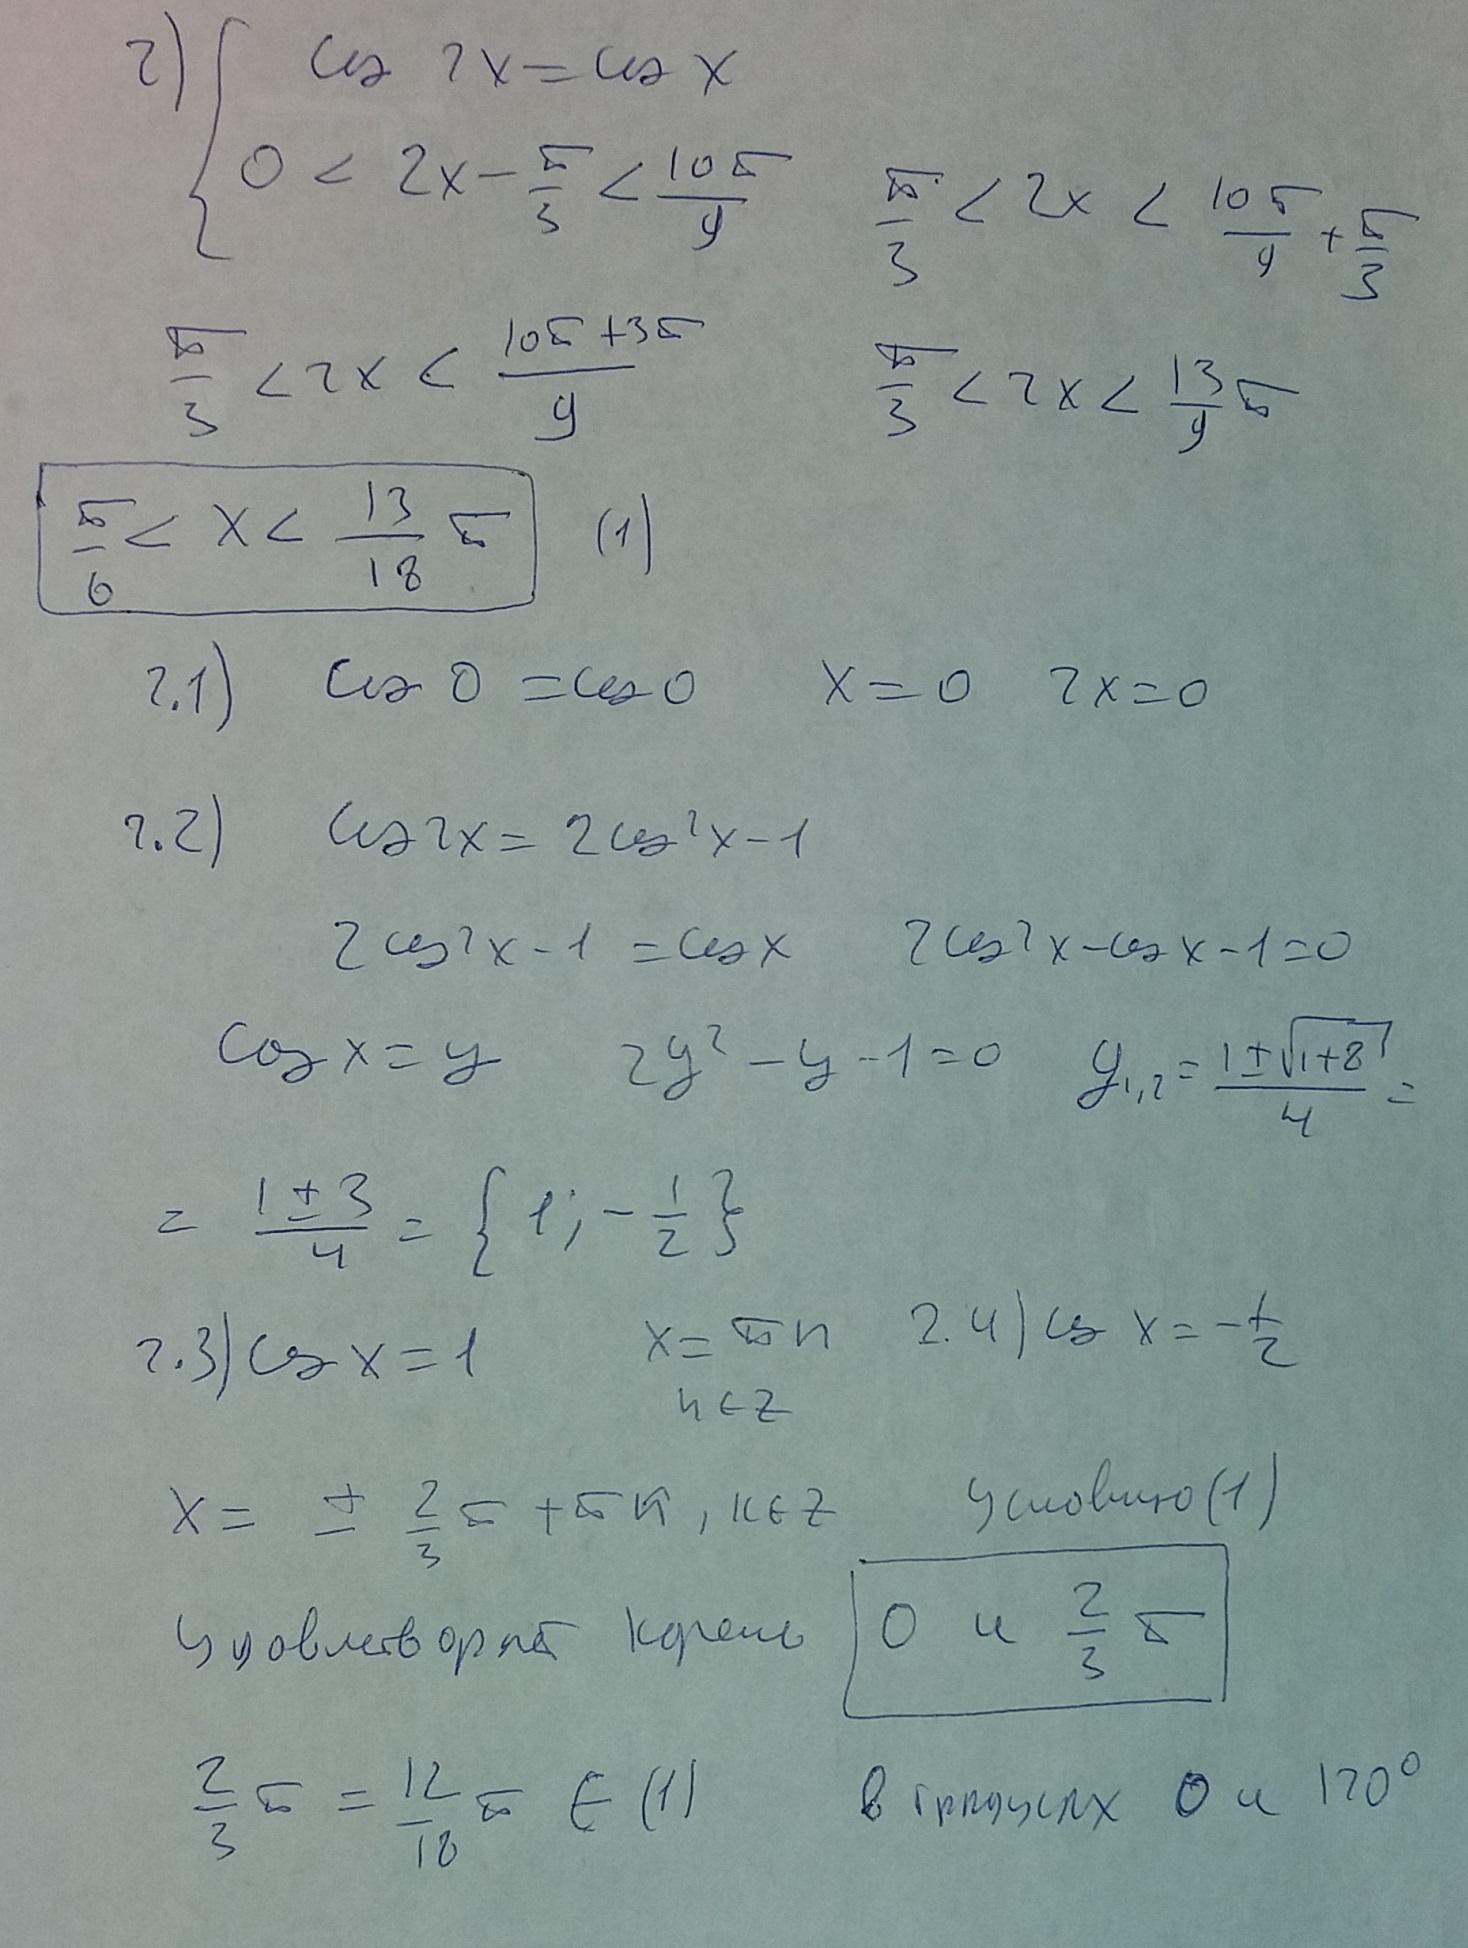 2) { cos 2x = cos x
0 < 2x - π/3 < 10π/9
π/3 < 2x < 10π/9 + π/3
π/3 < 2x < (10π + 3π)/9
π/3 < 2x < 13/9 π
π/6 < x < 13/18 π (1)
2.1) cos 0 = cos 0 x = 0 2x = 0
2.2) cos 2x = 2cos²x - 1
2cos²x - 1 = cos x 2cos²x - cos x - 1 = 0
cos x = y 2y² - y - 1 = 0 y₁,₂ = (1 ± √(1+8))/4 =
= (1 ± 3)/4 = {1; -1/2}
2.3) cos x = 1 x = πn 2.4) cos x = -1/2
n ∈ Z
x = ± 2/3 π + πк, к ∈ Z условию (1)
удовлетворят корень 0 и 2/3 π
2/3 π = 12/18 π ∈ (1) в градусах 0 и 120°